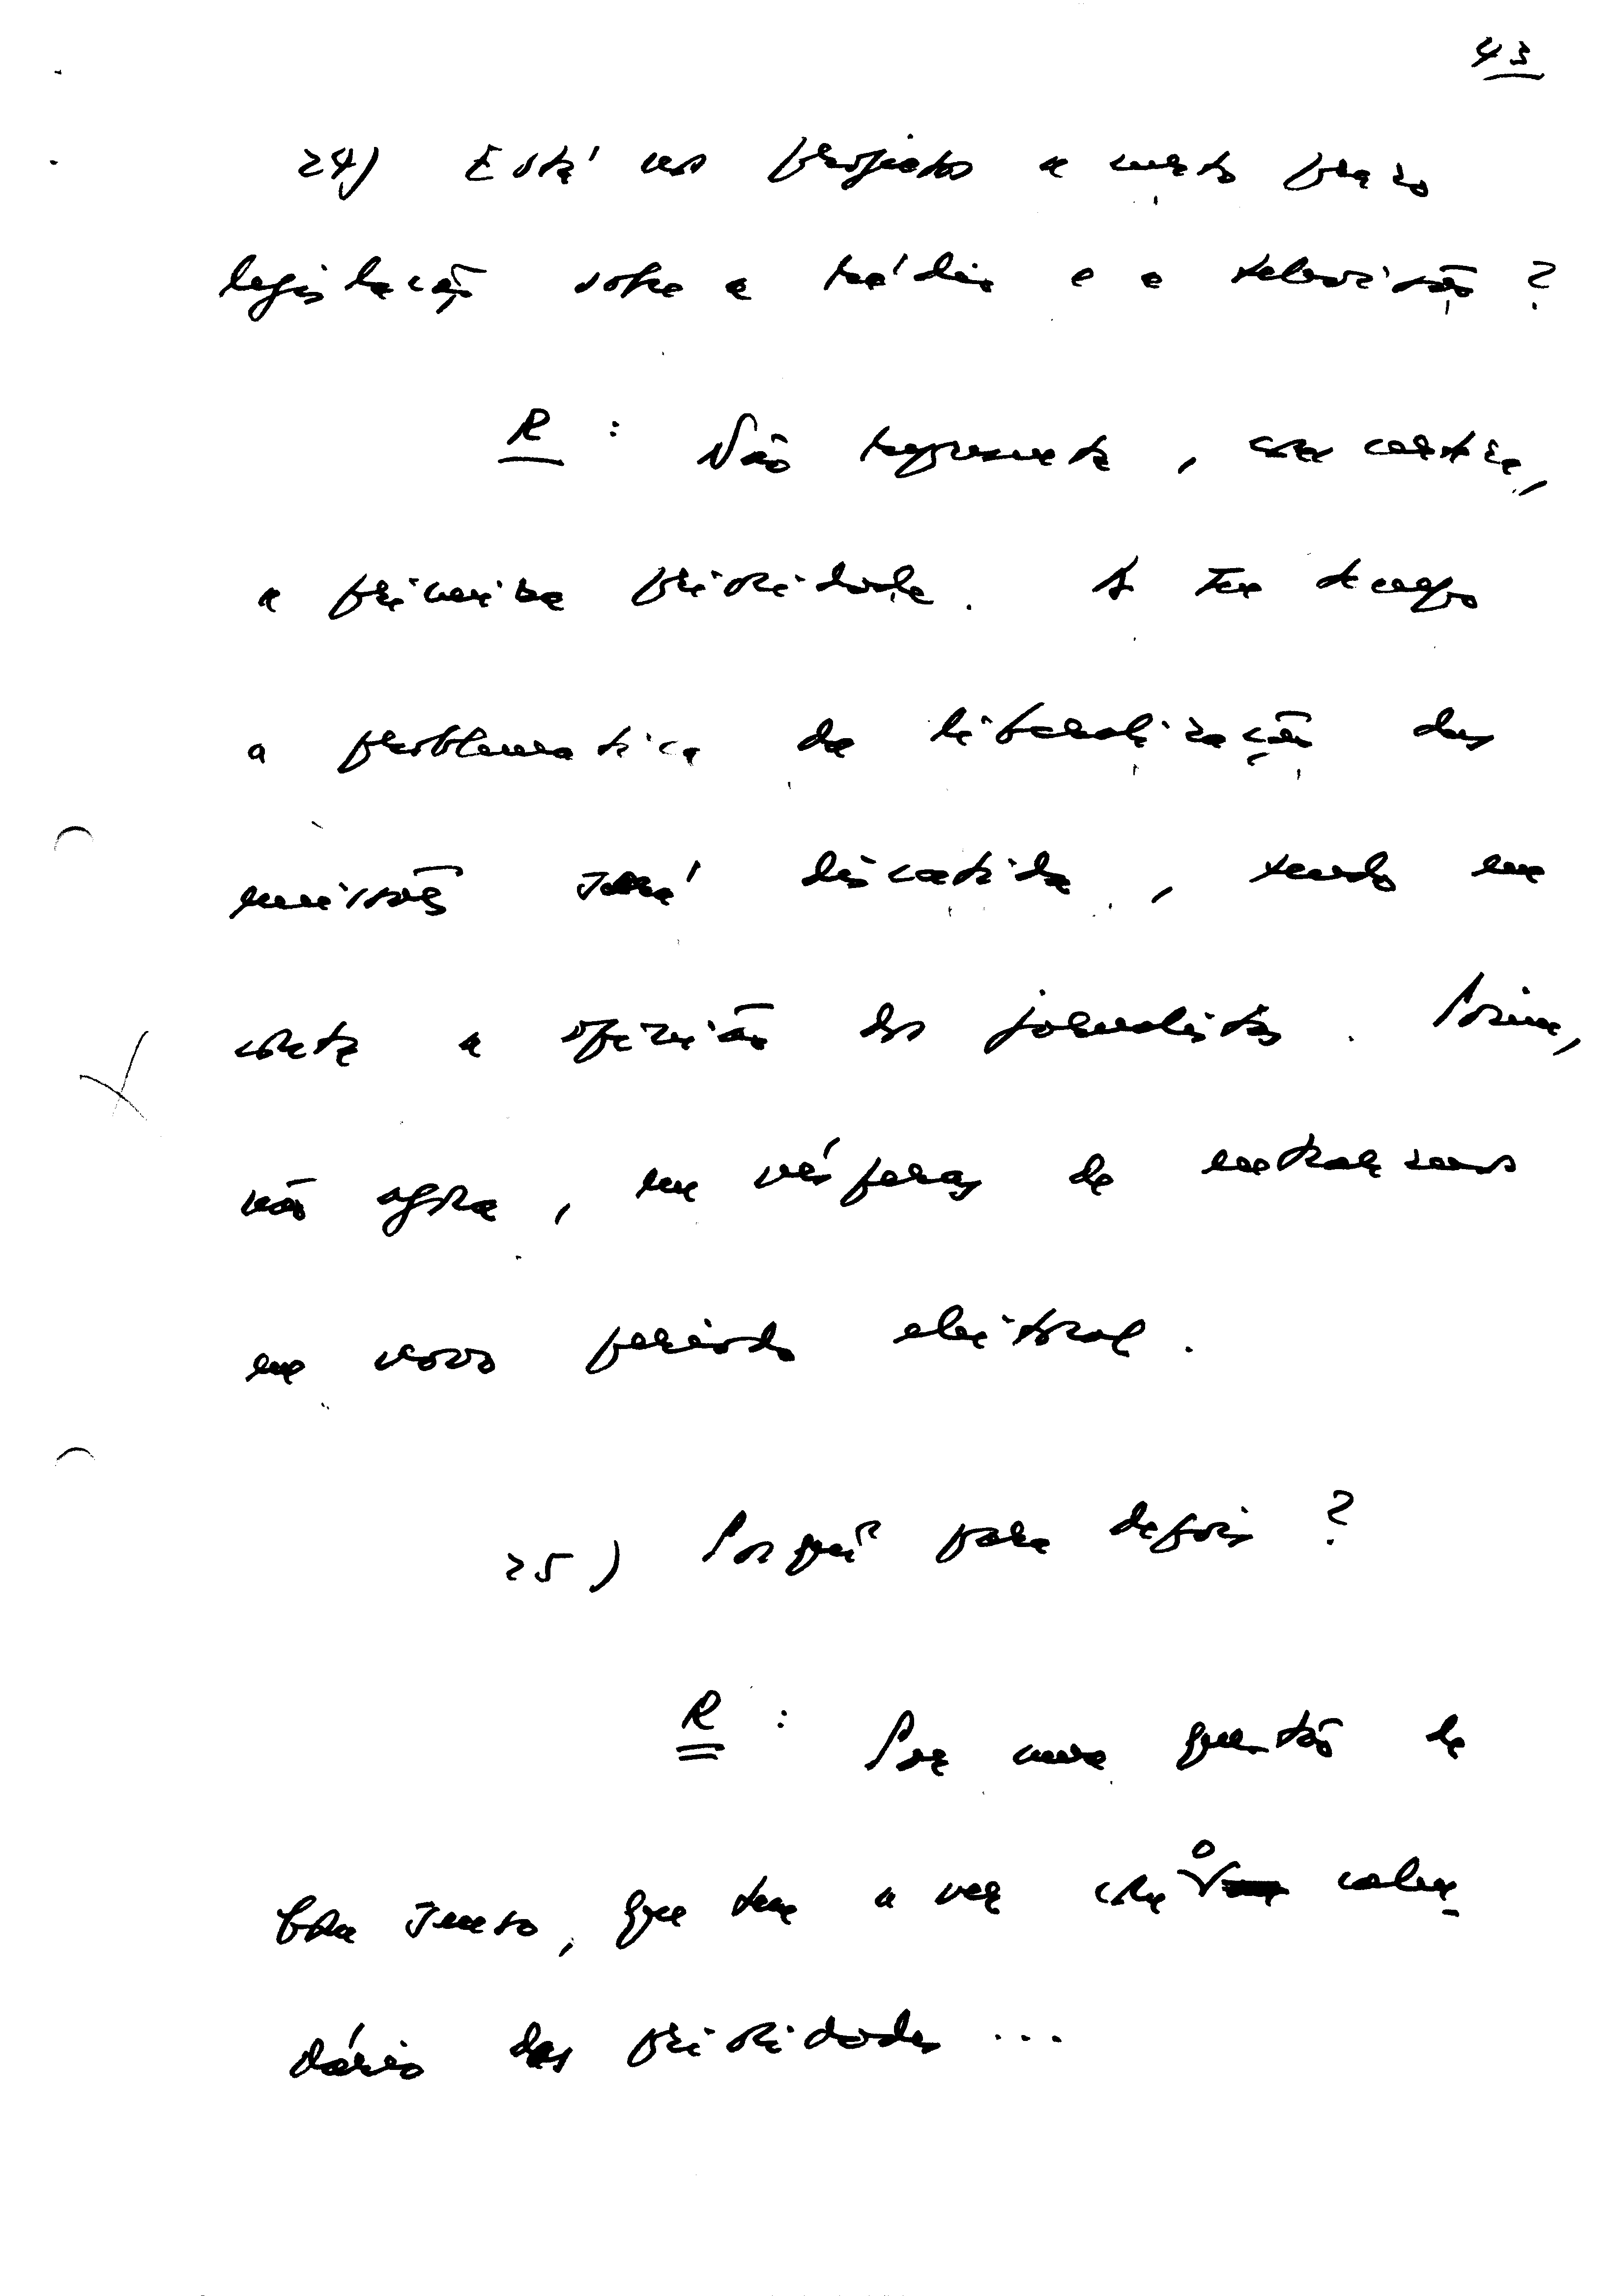 43
24) Está nos projectos a curto prazo
legislação sobre a rádio e a televisão ?
R : Não representa, com certeza,
a primeira prioridade. A seu tempo
a problematica da liberalização das
emissões será discutida, tendo em
conta a opinião dos jornalistas. Porém,
não agora, em vésperas de entrarmos
em novo período eleitoral.
25) Porquê para depois ?
R : Por uma questão de
bom senso, que tem a ver com o calen-
dário das prioridades ...